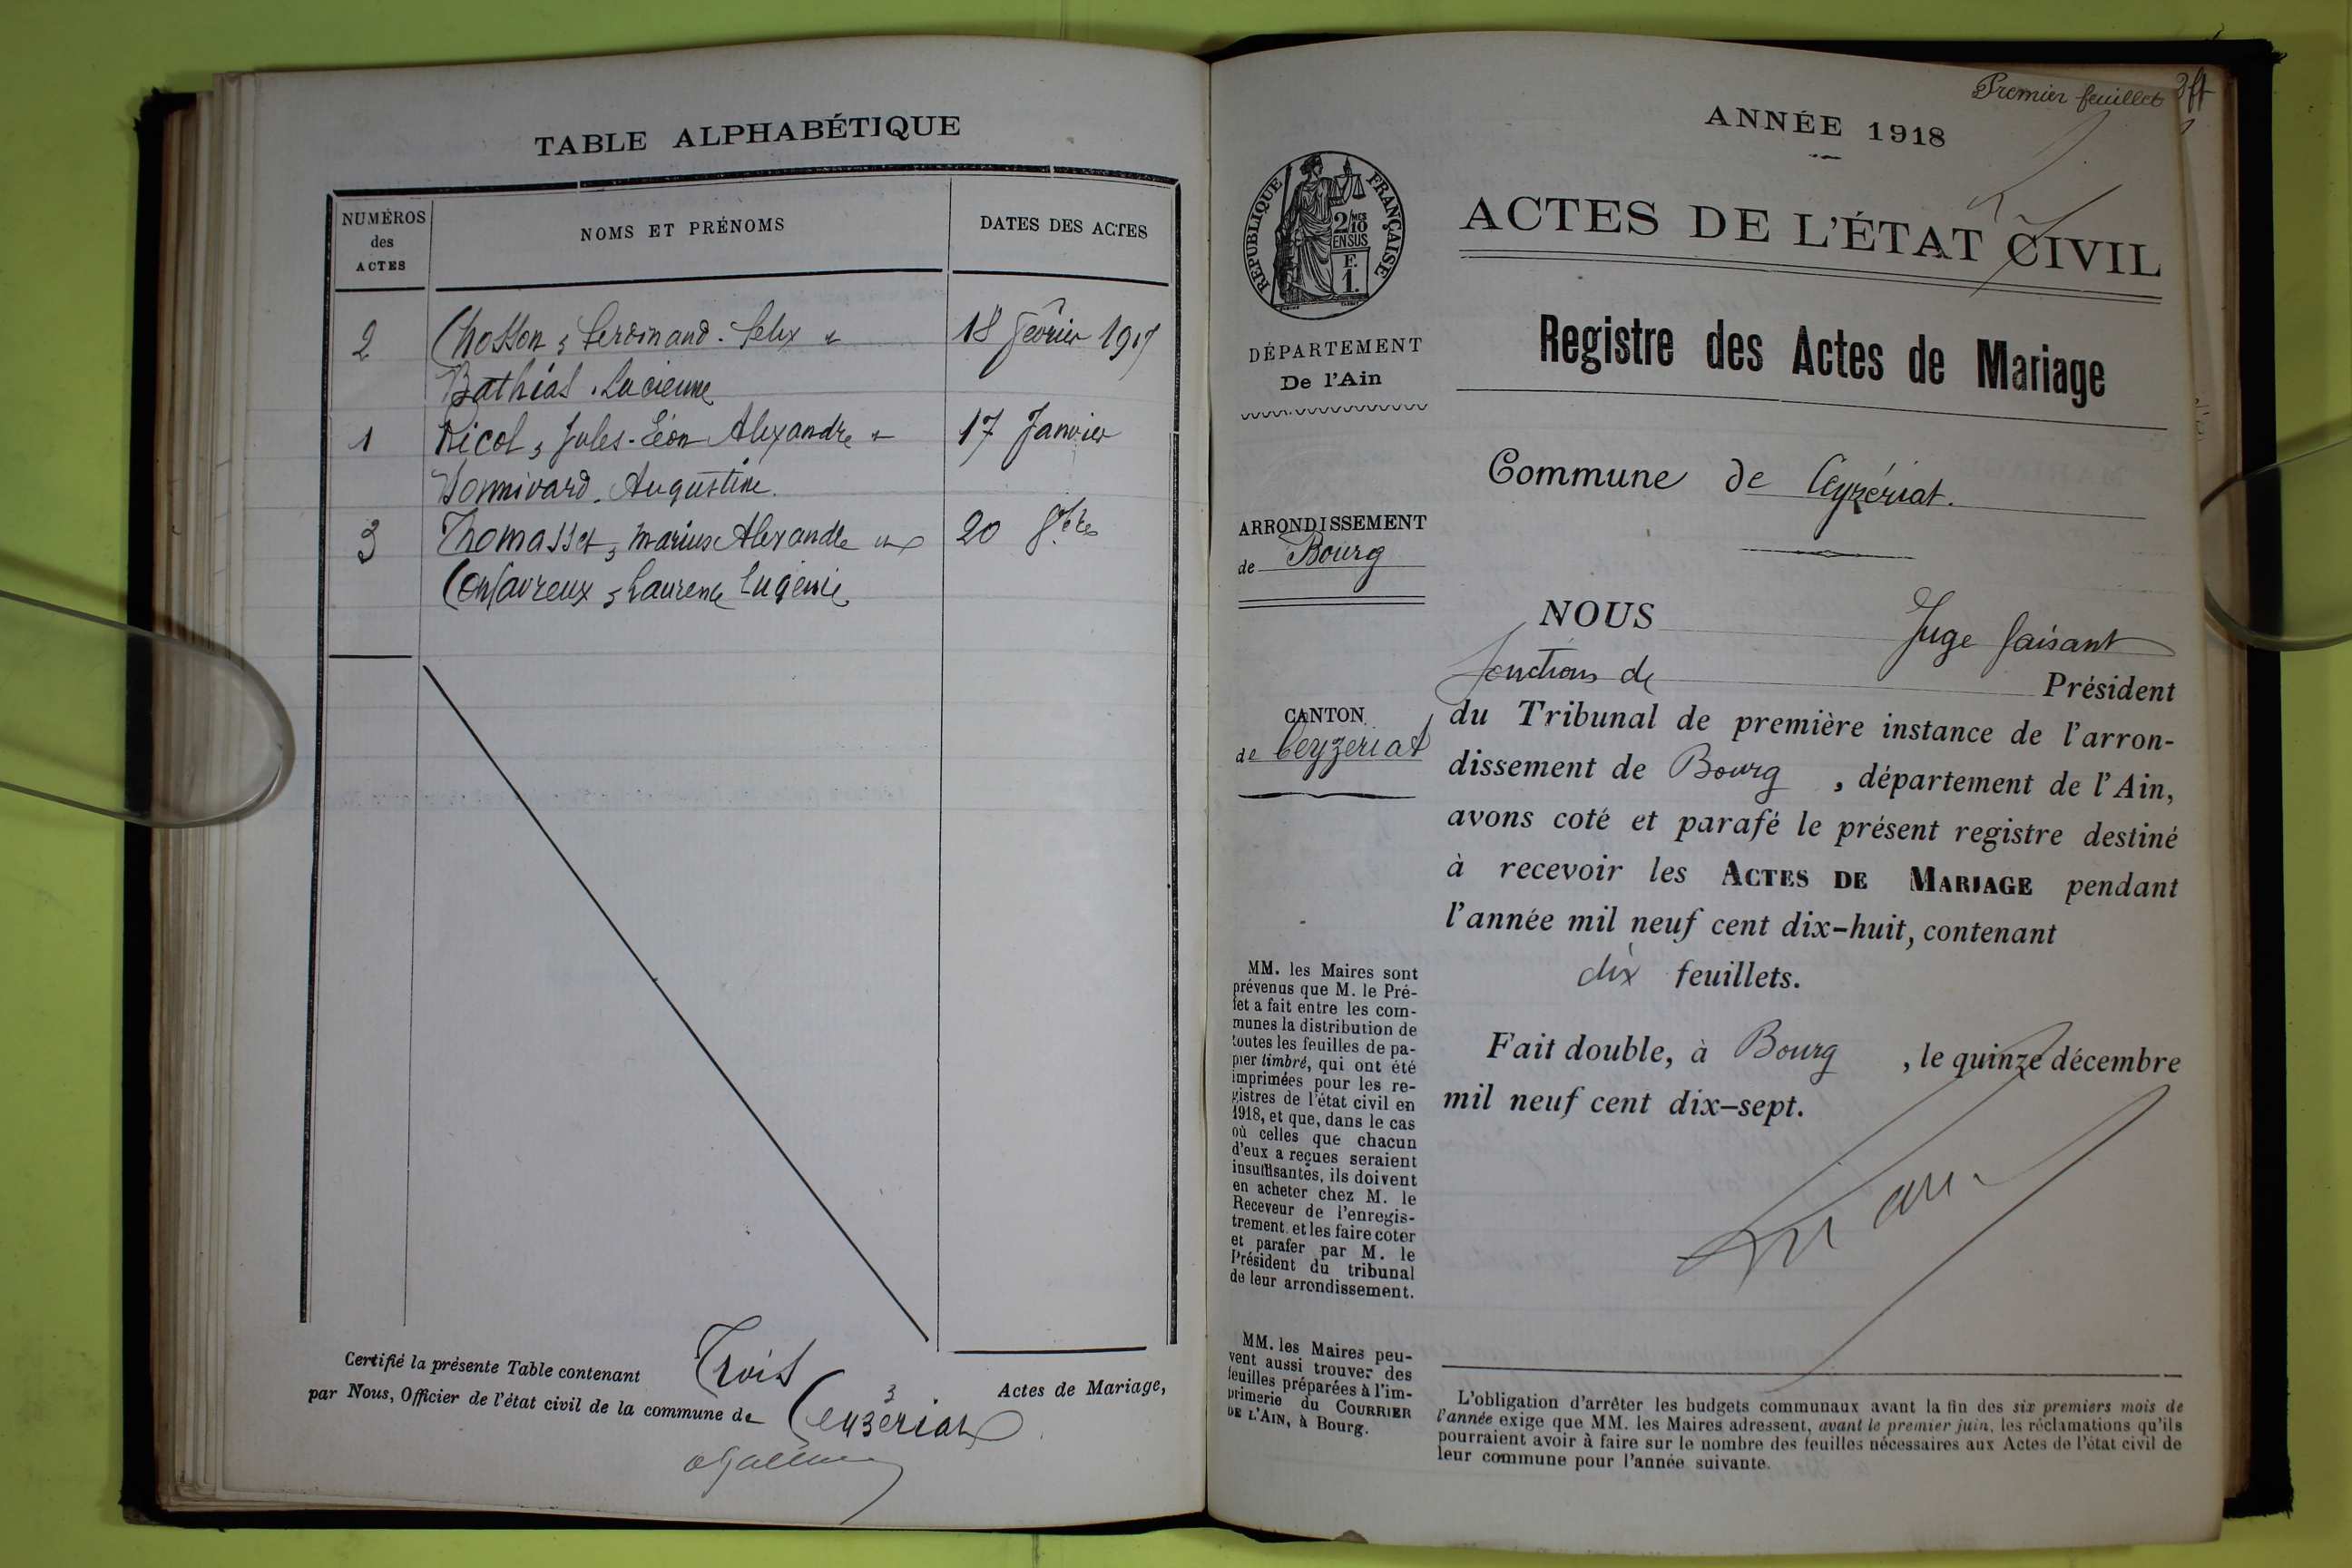 TABLE ALPHABÉTIQUE
NUMÉROS
des
ACTES
NOMS ET PRÉNOMS
DATES DES ACTES
2 Chosson, Ferdinand. Felix & 18 Février 1917
Bathias. Lucienne
1 Nicol, Jules-Léon Alexandre & 17 Janvier
Bonnivard. Augustine.
3 Thomasset, Marius Alexandre et 20
Confavreux, Laurence Eugénie
Certifié la présente Table contenant Trois Actes de Mariage,
par Nous, Officier de l'état civil de la commune de Ceyzériat
Premier feuillet
ANNÉE 1918
RÉPUBLIQUE FRANÇAISE
2/10MES
EN SUS
F.
1.
ACTES DE L'ÉTAT CIVIL
Registre des Actes de Mariage
DÉPARTEMENT
De l'Ain
Commune de Ceyzériat.
ARRONDISSEMENT
de Bourg
CANTON
de Ceyzeriat
NOUS Juge faisant
fonctions de Président
du Tribunal de première instance de l'arron-
dissement de Bourg, département de l'Ain,
avons coté et parafé le présent registre destiné
à recevoir les ACTES DE MARIAGE pendant
l'année mil neuf cent dix-huit, contenant
dix feuillets.
Fait double, à Bourg, le quinze décembre
mil neuf cent dix-sept.
MM. les Maires sont
prévenus que M. le Pré-
fet a fait entre les com-
munes la distribution de
toutes les feuilles de pa-
pier timbré, qui ont été
imprimées pour les re-
gistres de l'état civil en
1918, et que, dans le cas
où celles que chacun
d'eux a reçues seraient
insuffisantes, ils doivent
en acheter chez M. le
Receveur de l'enregis-
trement et les faire coter
et parafer par M. le
Président du tribunal
de leur arrondissement.
MM. les Maires peu-
vent aussi trouver des
feuilles préparées à l'im-
primerie du COURRIER
DE L'AIN, à Bourg.
L'obligation d'arrêter les budgets communaux avant la fin des six premiers mois de
l'année exige que MM. les Maires adressent, avant le premier juin, les réclamations qu'ils
pourraient avoir à faire sur le nombre des feuilles nécessaires aux Actes de l'état civil de
leur commune pour l'année suivante.